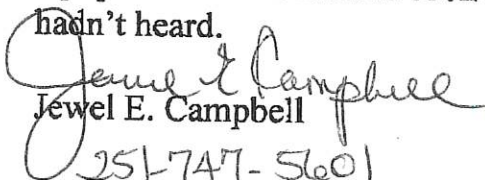 hadn't heard.
Jewel E Campbell
Jewel E. Campbell
251-747-5601